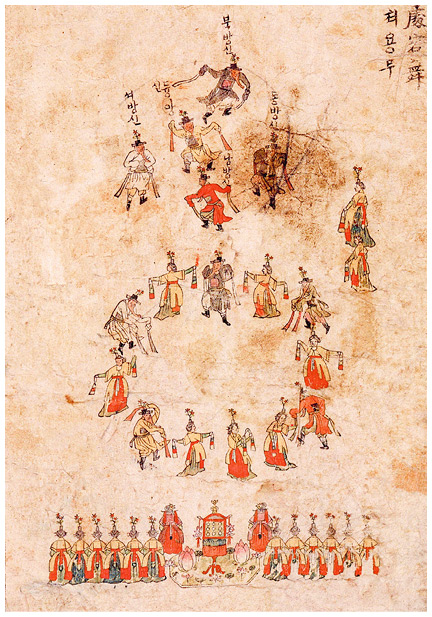 處容舞
쳐용무
북방신
동방신
듕아
신
셔방신
남방신